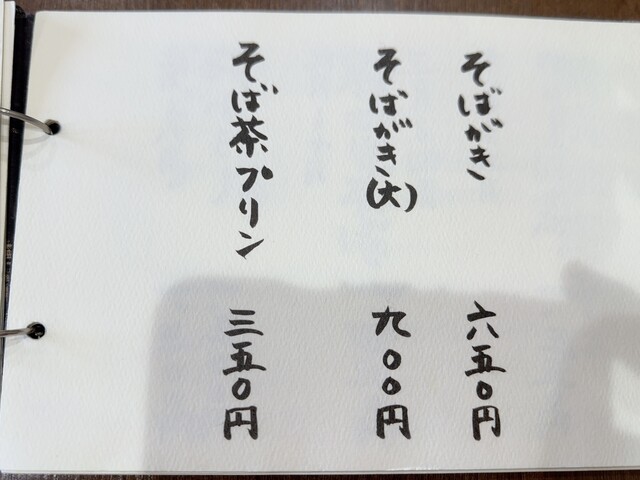 そばがき 六五〇円
そばがき(大) 九〇〇円
そば茶プリン 三五〇円